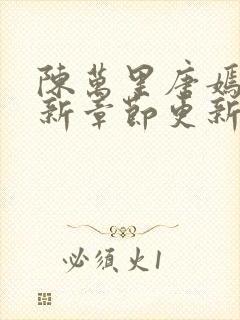 陳萬里唐嫣
新章節更新
必須火1